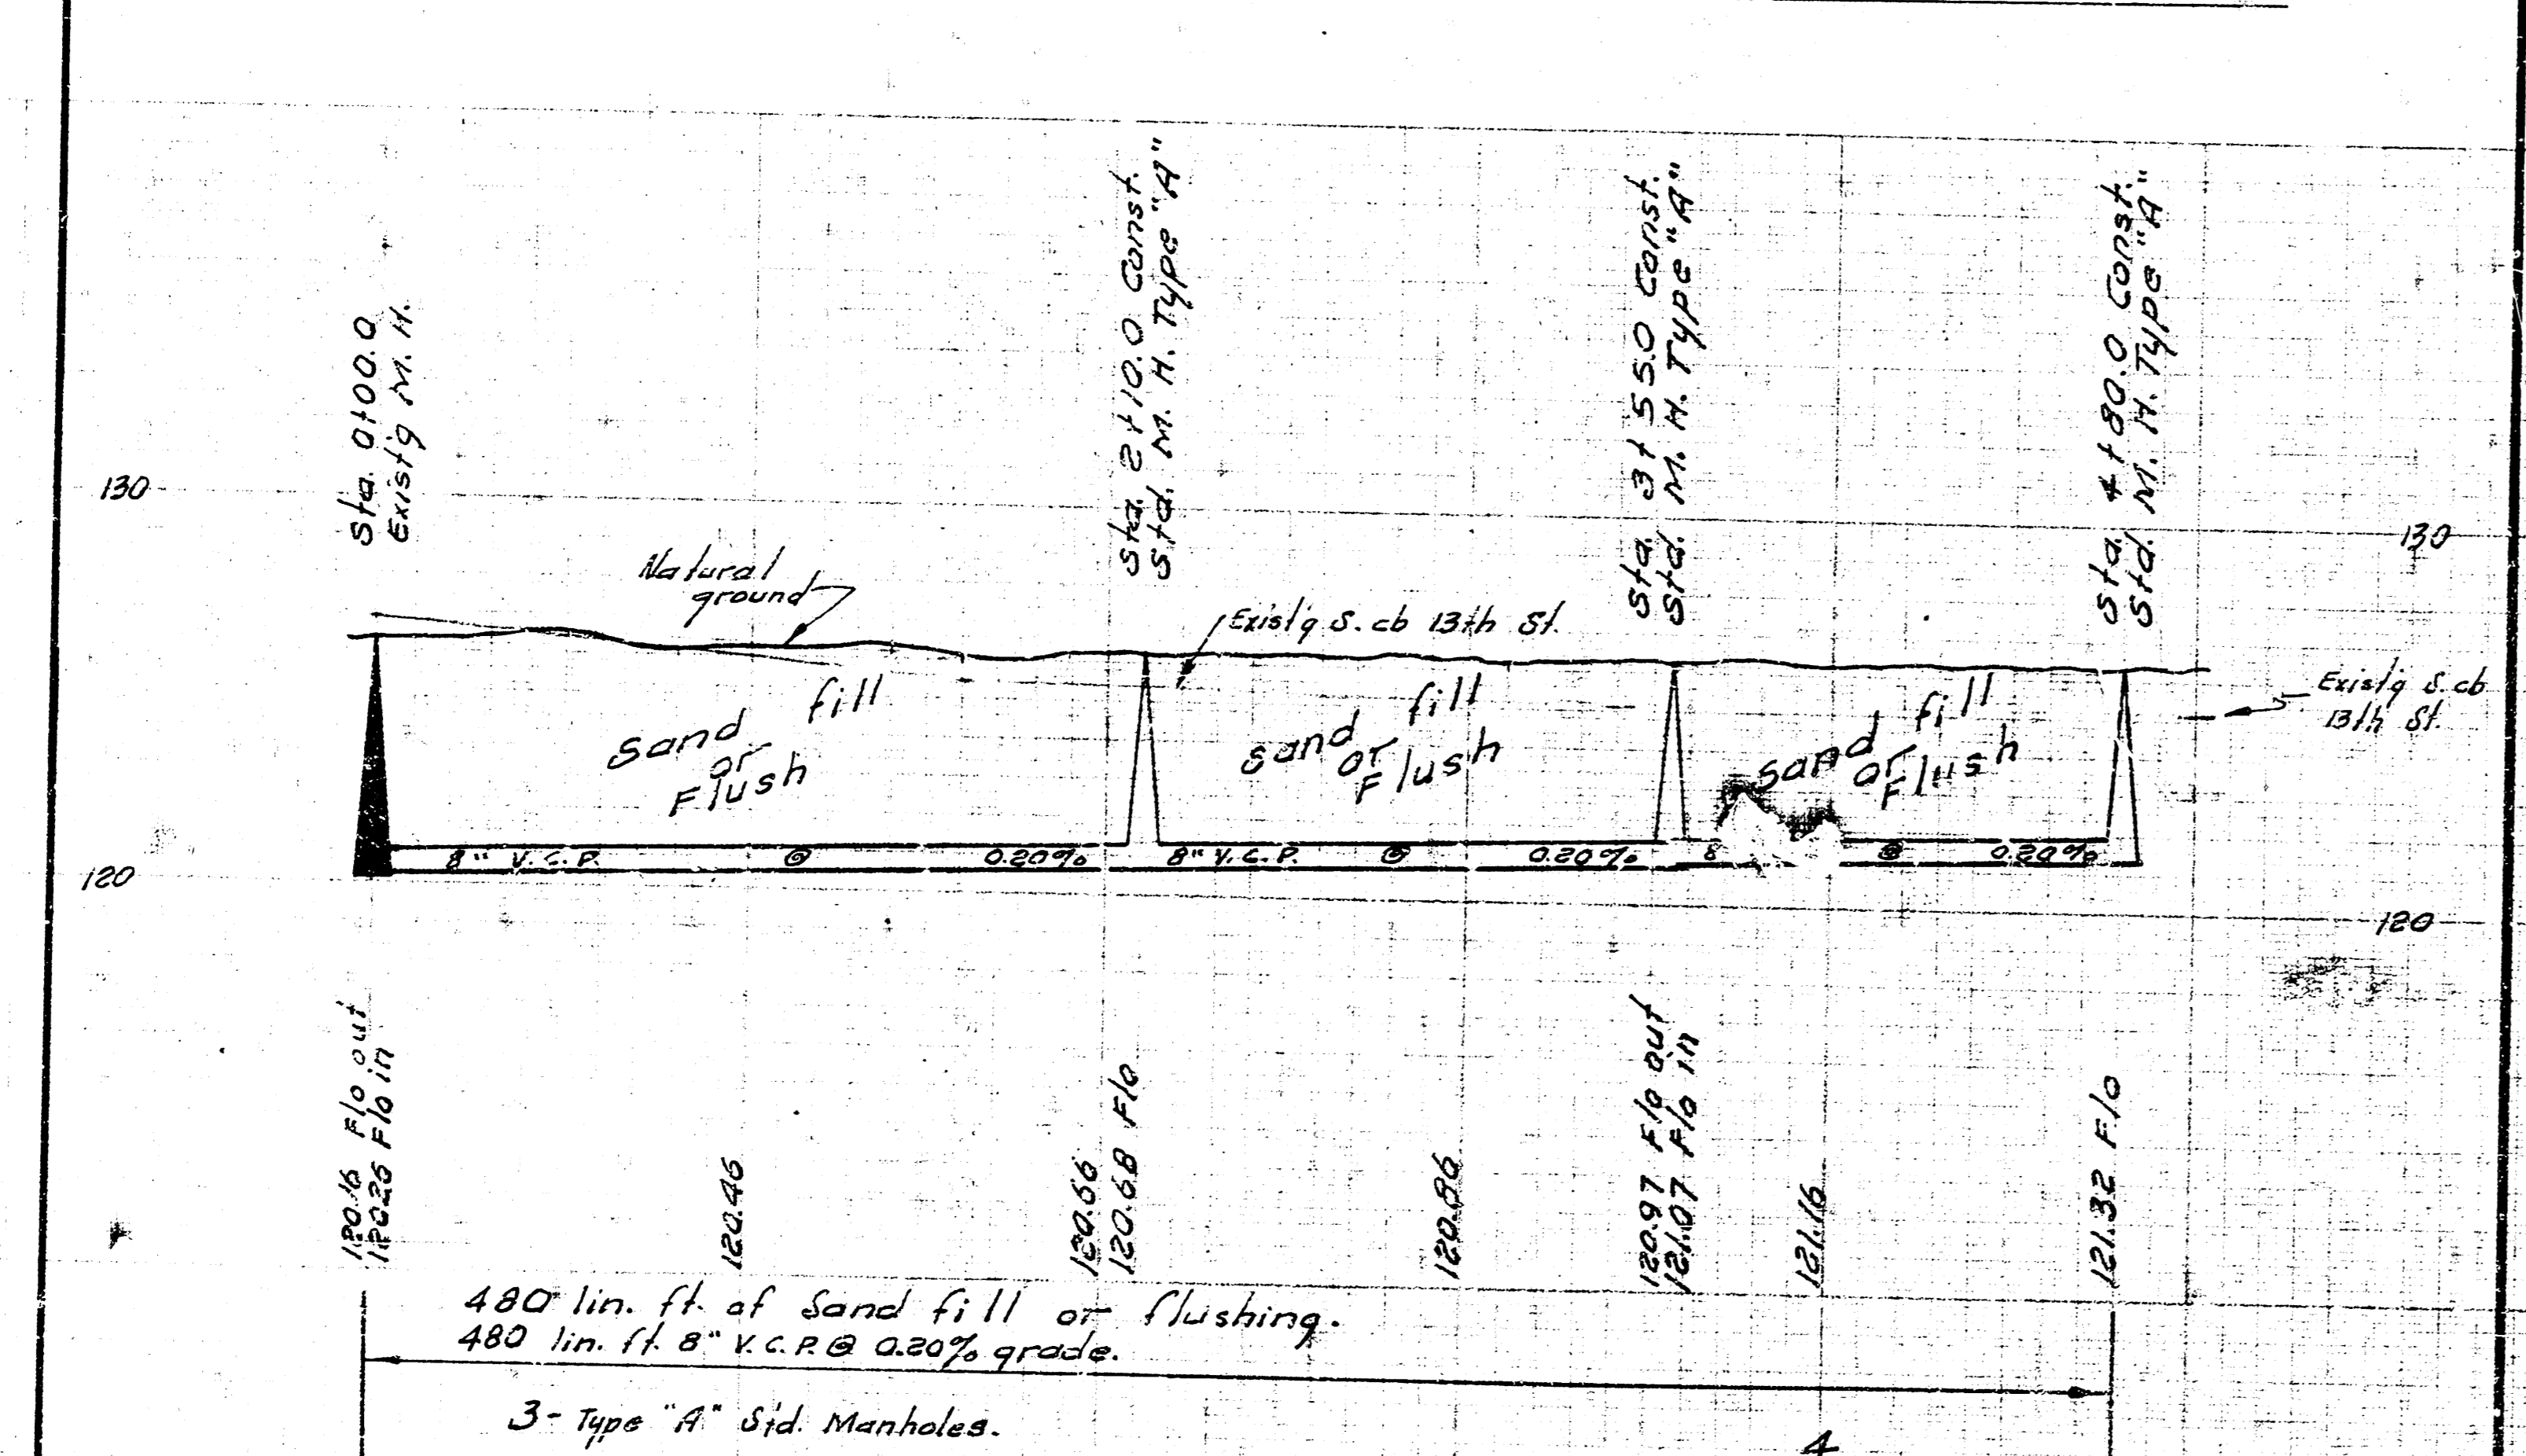 Sta. 0+00.0
Exist'g M. H.
Sta. 2+10.0 Const.
Std. M. H. Type "A"
Sta. 3+55.0 Const.
Std. M. H. Type "A"
Sta. 4+80.0 Const.
Std. M. H. Type "A"
130
130
Natural
ground
Exist'g S. cb 13th St.
Exist'g S. cb
13th St.
Sand fill
or
Flush
Sand fill
or
Flush
Sand fill
or
Flush
8" V. C. P. @ 0.20%
8" V. C. P. @ 0.20%
8 @ 0.20%
120
120
120.16 Flo out
120.26 Flo in
120.46
120.66
120.68 Flo
120.86
120.97 Flo out
121.07 Flo in
121.16
121.32 Flo
480 lin. ft. of Sand fill or flushing.
480 lin. ft. 8" V. C. P. @ 0.20% grade.
3- Type "A" Std. Manholes.
4